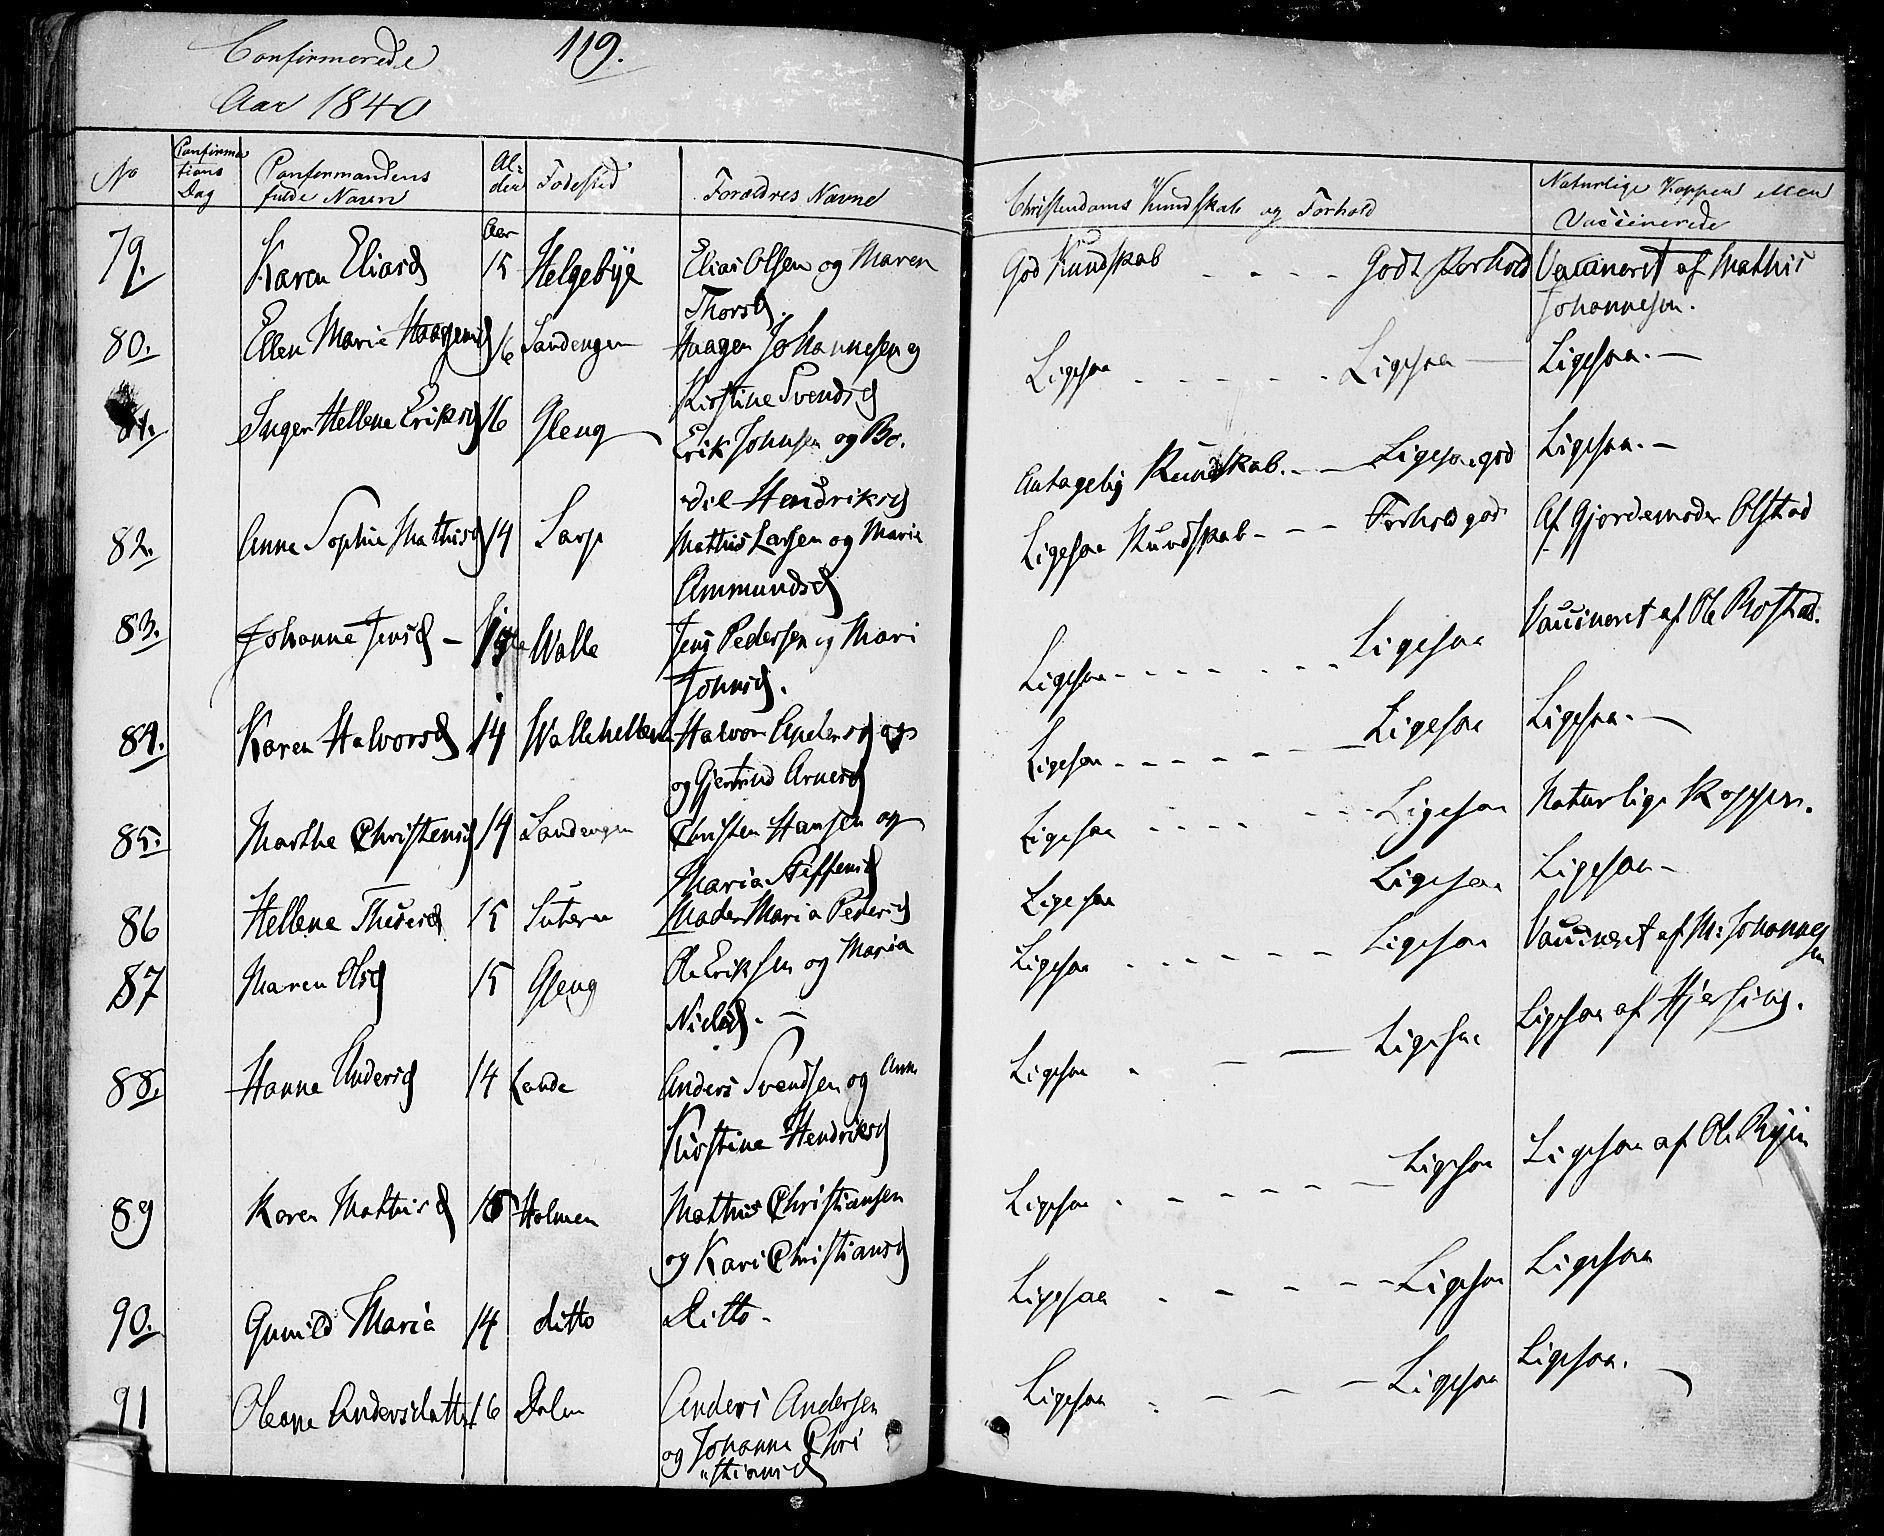 Confirmerede 119.
Aar 1840
No Confirma Confirmandens Al= Fødested Forældres Navne Christendoms Kundskab og Forhold Naturlige Koppen eller
tions fulde Navn der Vaccinerede
Dag
Aar
79. Karen Eliasd 15 Helgebye Elias Olsen og Maren God Kundskab - - - - Godt Forhold Vaccineret af Mathis
Thorsd. Johannesen.
80. Ellen Marie Haagensd 16 Sandengen Haagen Johannesen og Ligesaa - - - - - Ligesaa — Ligesaa. —
Kirstine Svendsd
81. Inger Hellene Eriksd 16 Gleng Erik Johnsen og Bo. Antagelig Kundskab. - — Ligesaa god Ligesaa. —
dil Hendriksd
82. Anne Sophie Mathisd 14 Sarp Mathis Larsen og Marie Ligesaa Kundskab - - - Forhold god Af Gjordemoder Olstad
Ammundsd
83. Johanne Jensd — Walle Jens Pedersen og Mari Ligesaa - - - - - - - Ligesaa Vaccineret af Ole Rostad.
Johnsd.
84. Karen Halvorsd 14 Wallehellene Halvor og Ligesaa - - - - - - — Ligesaa Ligesaa. —
og Gjertrud Arnesd
85. Marthe Christensd 14 Sandengen Christen Hansen og Ligesaa - - - - - - - Ligesaa Naturlige Kopper.
Maria Steffensd
86 Hellene Theresd 15 Moder Maria Pedersd Ligesaa Ligesaa Ligesaa —
87 Maren Olsd 15 Gleng Ole Eriksen og Maria Ligesaa - - - - - - Ligesaa Vaccineret af M: Johannes
Nielsd. — sen
88. Hanne Andersd 14 Lande Anders Svendsen og Ann Ligesaa - - — Ligesaa Ligesaa af
Kirstine Hendriksd
89 Karen Mathisd 15 Holmen Mathis Christiansen Ligesaa - - - - - — Ligesaa Ligesaa af Ole
og Kari Christiansd
90. Gunild Maria 14 ditto Ditto - Ligesaa - - - - - Ligesaa Ligesaa
91 Oleane Andersdatter 16 Dalen Anders Andersen Ligesaa - - - - Ligesaa Ligesaa. —
og Johanne Chri
"stiansd